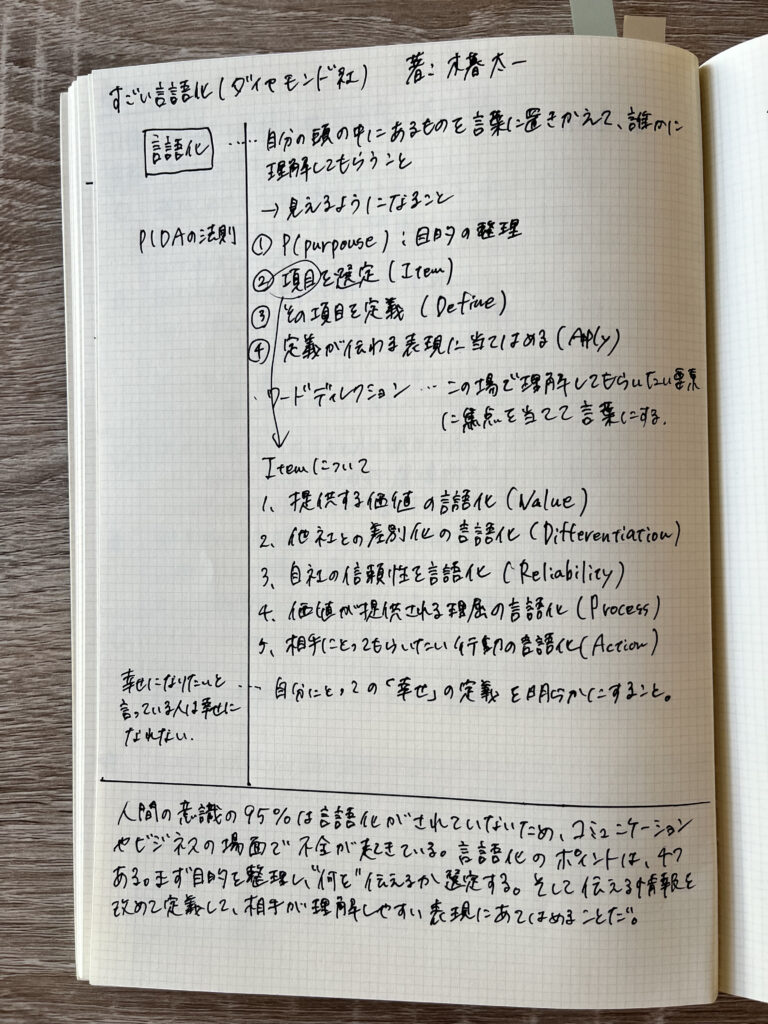 すごい言語化(ダイヤモンド社) 著：木暮太一
言語化 ‥‥ 自分の頭の中にあるものを言葉に置きかえて、誰かに
理解してもらうこと
→ 見えるようになること
PIDAの法則 ① P(purpouse)：目的の整理
② 項目を選定(Item)
③ その項目を定義(Define)
④ 定義が伝わる表現に当てはめる(Apply)
・ワードディレクション … この場で理解してもらいたい要素
に焦点を当てて言葉にする.
Itemについて
1、提供する価値の言語化(Value)
2、他社との差別化の言語化(Differentiation)
3、自社の信頼性を言語化(Reliability)
4、価値が提供される理屈の言語化(Process)
5、相手にとってもらいたい行動の言語化(Action)
幸せになりたいと ‥‥ 自分にとっての「幸せ」の定義を明らかにすること。
言っている人は幸せに
なれない.
人間の意識の95%は言語化がされていないため、コミュニケーション
やビジネスの場面で不全が起きている。言語化のポイントは、4つ
ある。まず目的を整理し、"何を"伝えるか選定する。そして伝える情報を
改めて定義して、相手が理解しやすい表現にあてはめることだ。